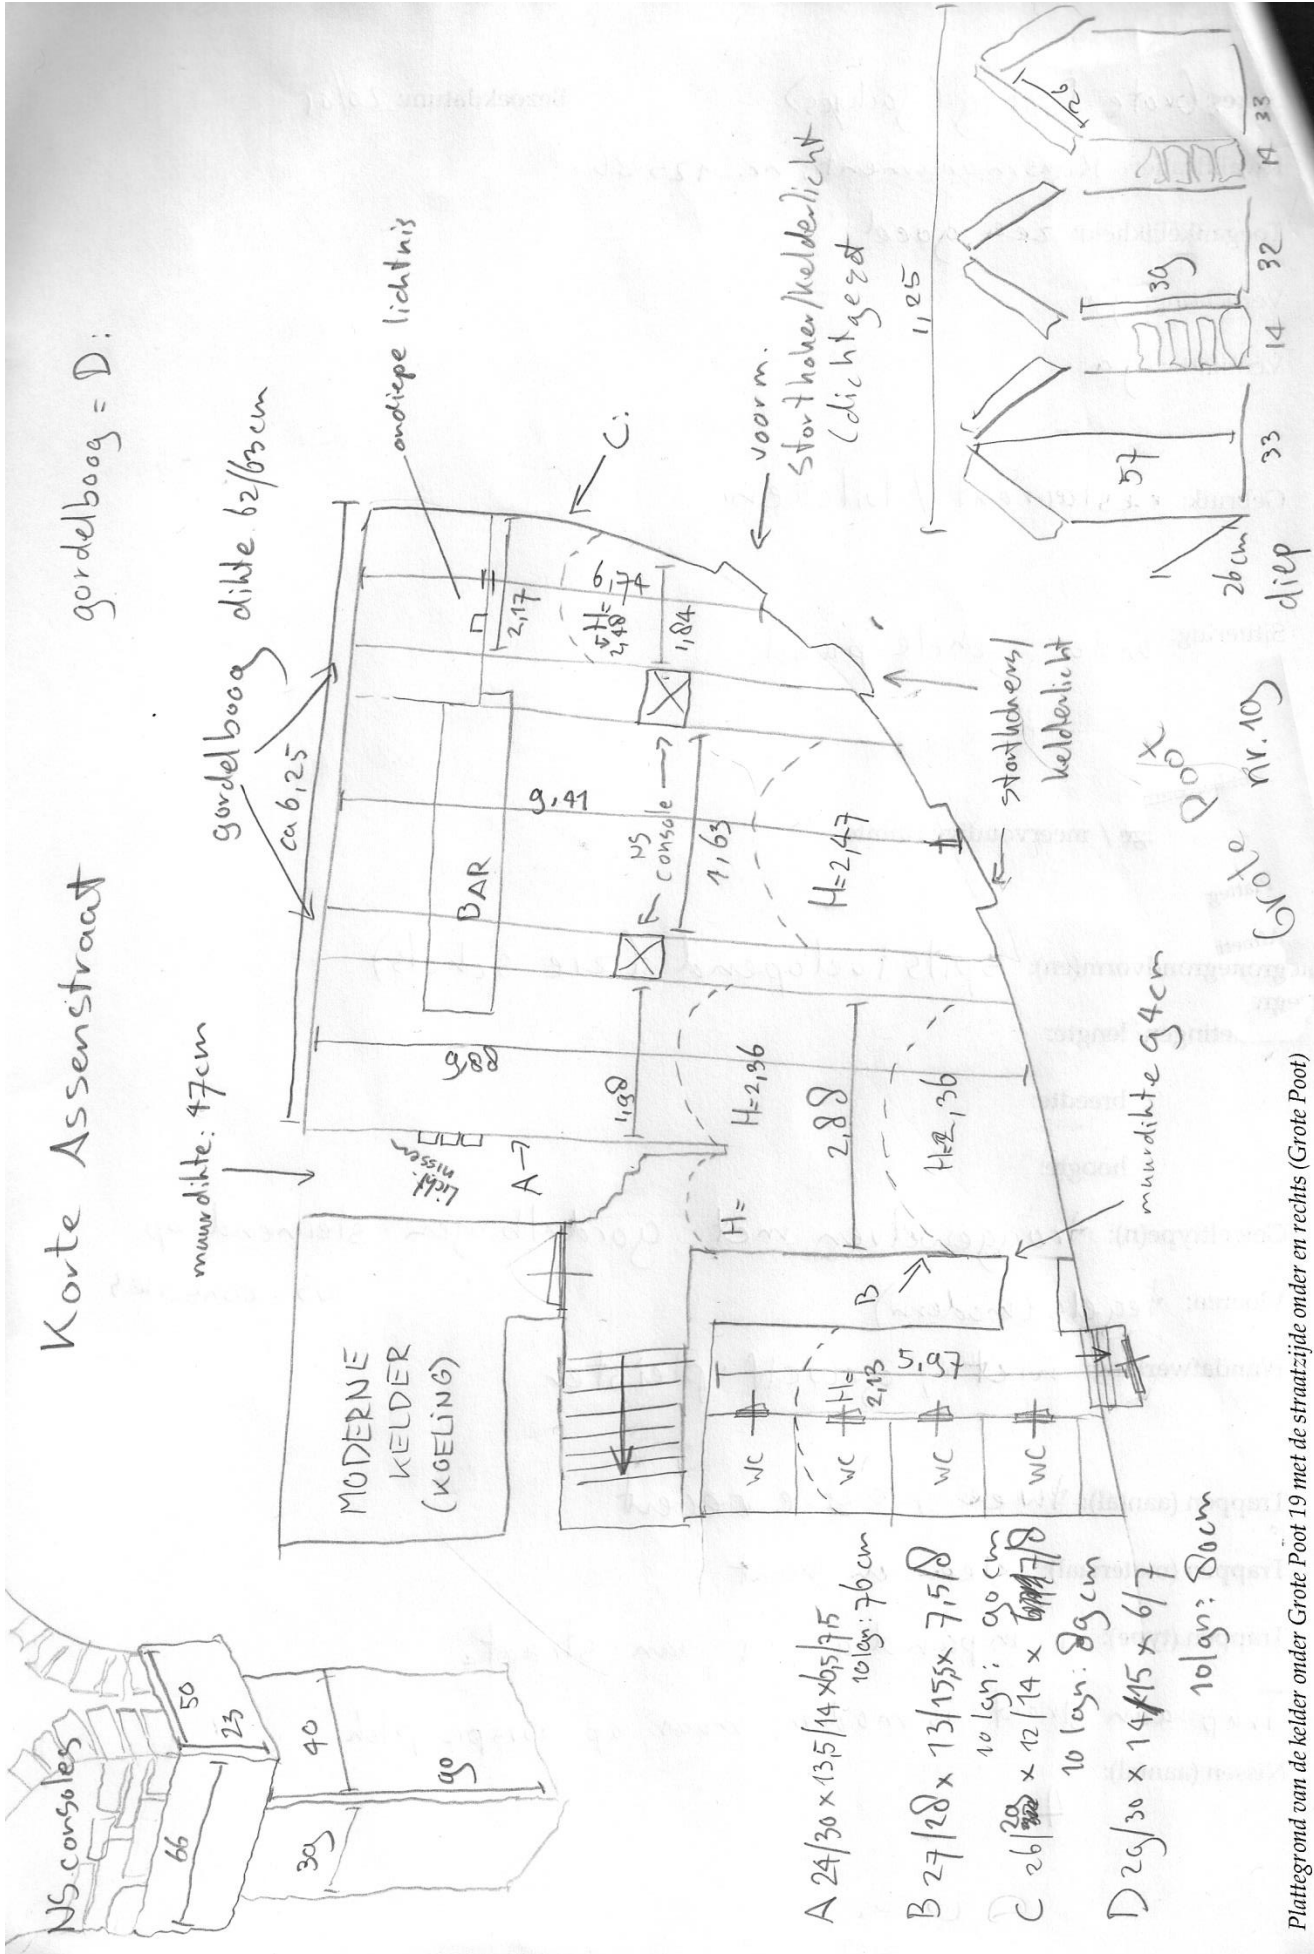 Korte Assenstraat
gordelboog = D:
muurdikte: 47cm
gordelboog dikte. 62/63cm
ca 6,25
ondiepe lichtnis
NS. consoles
50
23
66
40
39
90
MODERNE
KELDER
(KOELING)
licht
nissen
A
9,88
BAR
9,41
2,17
6,74
H=
2,48
1,84
C:
NS
console
1,63
1,98
H=2,36
H=2,47
H=
2,88
H=2,36
B
5,97
H=
2,13
WC
WC
WC
WC
muurdikte 94cm
voorm.
stortkoker/kelderlicht
(dichtgezet
stortkokers/
kelderlicht
Grote Poot
nr. 19
1,25
26
57
39
26cm
diep
33
14
32
14
33
A 24/30 x 13,5/14 x 6,5/7,5
10 lgn: 76 cm
B 27/28 x 13/15,5 x 7,5/8
10 lgn: 90 cm
C 26/29 x 12/14 x 7/8
10 lagn: 89 cm
D 29/30 x 14/15 x 6/7
10 lgn: 80cm
Plattegrond van de kelder onder Grote Poot 19 met de straatzijde onder en rechts (Grote Poot)